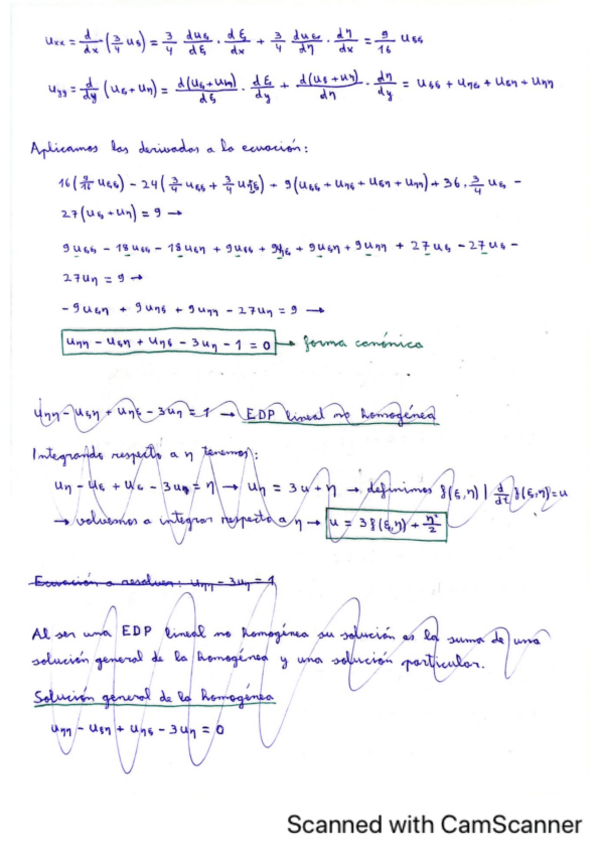 uxx = d/dx (3/4 uξ) = 3/4 duξ/dξ · dξ/dx + 3/4 duξ/dη · dη/dx = 9/16 uξξ
uyy = d/dy (uξ + uη) = d(uξ+uη)/dξ · dξ/dy + d(uξ+uη)/dη · dη/dy = uξξ + uηξ + uξη + uηη
Aplicamos las derivadas a la ecuación:
16(9/16 uξξ) - 24(3/4 uξξ + 3/4 uηξ) + 9(uξξ + uηξ + uξη + uηη) + 36 · 3/4 uξ -
27(uξ + uη) = 9 →
9uξξ - 18uξξ - 18uξη + 9uξξ + 9uηξ + 9uξη + 9uηη + 27uξ - 27uξ -
27uη = 9 →
-9uξη + 9uηξ + 9uηη - 27uη = 9 →
uηη - uξη + uηξ - 3uη - 1 = 0 → forma canónica
uηη - uξη + uηξ - 3uη = 1 → EDP lineal no homogénea
Integrando respecto a η tenemos:
uη - uξ + uξ - 3u = η → uη = 3u + η → definimos f(ξ,η) | d/dξ f(ξ,η) = u
→ volvemos a integrar respecto a η → u = 3f(ξ,η) + η²/2
Ecuación a resolver: uηη - 3uη = 1
Al ser una EDP lineal no homogénea su solución es la suma de una
solución general de la homogénea y una solución particular.
Solución general de la homogénea
uηη - uξη + uηξ - 3uη = 0
Scanned with CamScanner